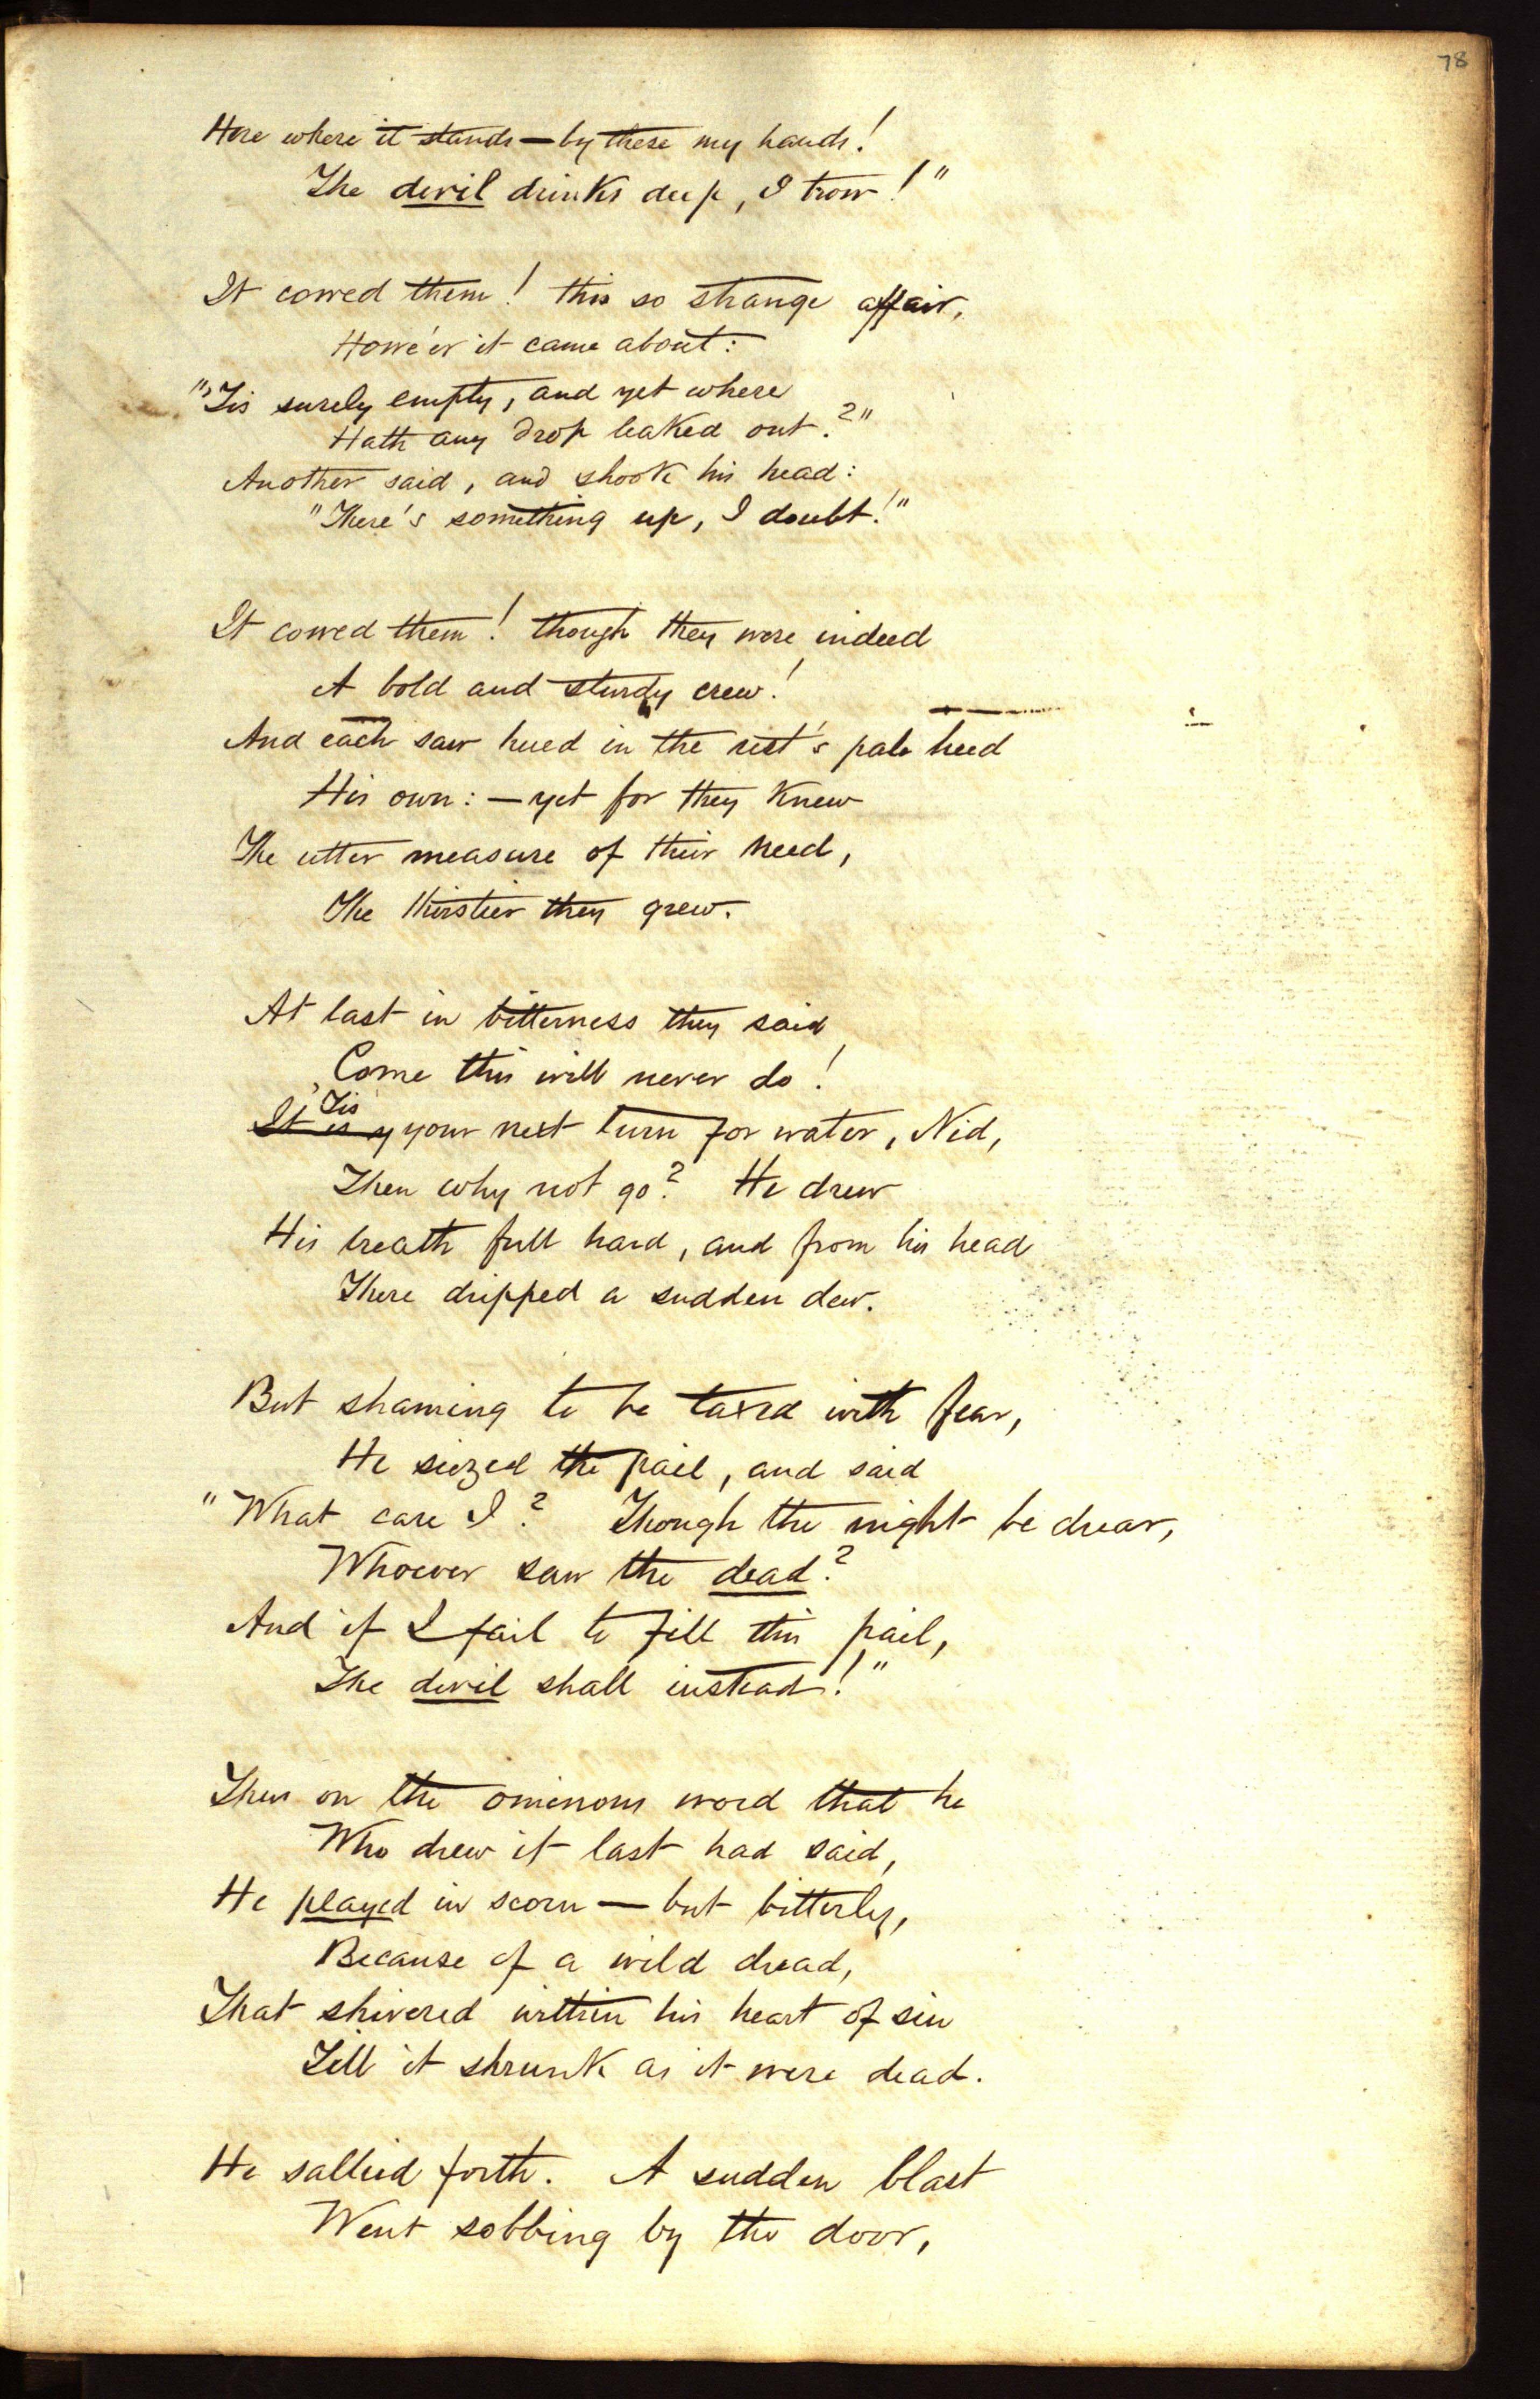 78
Here where it stands—by these my hands!
The devil drinks deep, I trow!"
It cowed them! this so strange affair,
Howe'er it came about:
"'Tis surely empty, and yet where
Hath any drop leaked out?"
Another said, and shook his head:
"There's something up, I doubt!"
It cowed them! though they were indeed
A bold and sturdy crew!
And each saw hued in the rest's pale heed
His own:—yet for they knew
The utter measure of their need,
The thirstier they grew.
At last in bitterness they said,
Come this will never do!
'Tis
It is y your next turn for water, Nid,
Then why not go? He drew
His breath full hard, and from his head
There dripped a sudden dew.
But shaming to be taxed with fear,
He seized the pail, and said
"What care I? Though the night be drear,
Whoever saw the dead?
And if I fail to fill this pail,
The devil shall instead!"
Then on the ominous word that he
Who drew it last had said,
He played in scorn—but bitterly,
Because of a wild dread,
That shivered within his heart of sin
Till it shrunk as it were dead.
He sallied forth. A sudden blast
Went sobbing by the door,